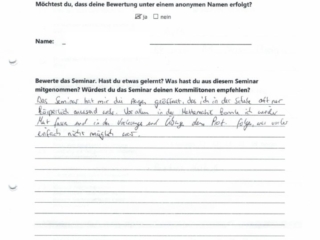 Möchtest du, dass deine Bewertung unter einem anonymen Namen erfolgt?
☑ ja ☐ nein
Name:
Bewerte das Seminar. Hast du etwas gelernt? Was hast du aus diesem Seminar
mitgenommen? Würdest du das Seminar deinen Kommilitonen empfehlen?
Das Seminar hat mir die Augen geöffnet, das ich in der Schule nicht nur
körperlich anwesend war. Vor allem in der Mathematik konnte ich wieder
Mut fassen und in der Vorlesung und Übung dem Prof. folgen, was vorher
einfach nicht möglich war.